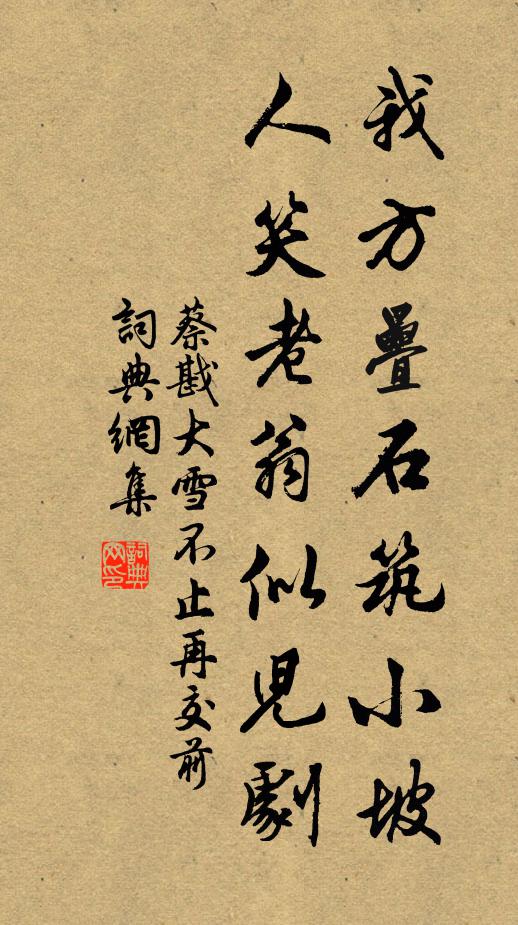 我方疊石筑小坡
人笑老翁似児劇
蔡戡大雪不止再交前
詞典網集
詞典網印